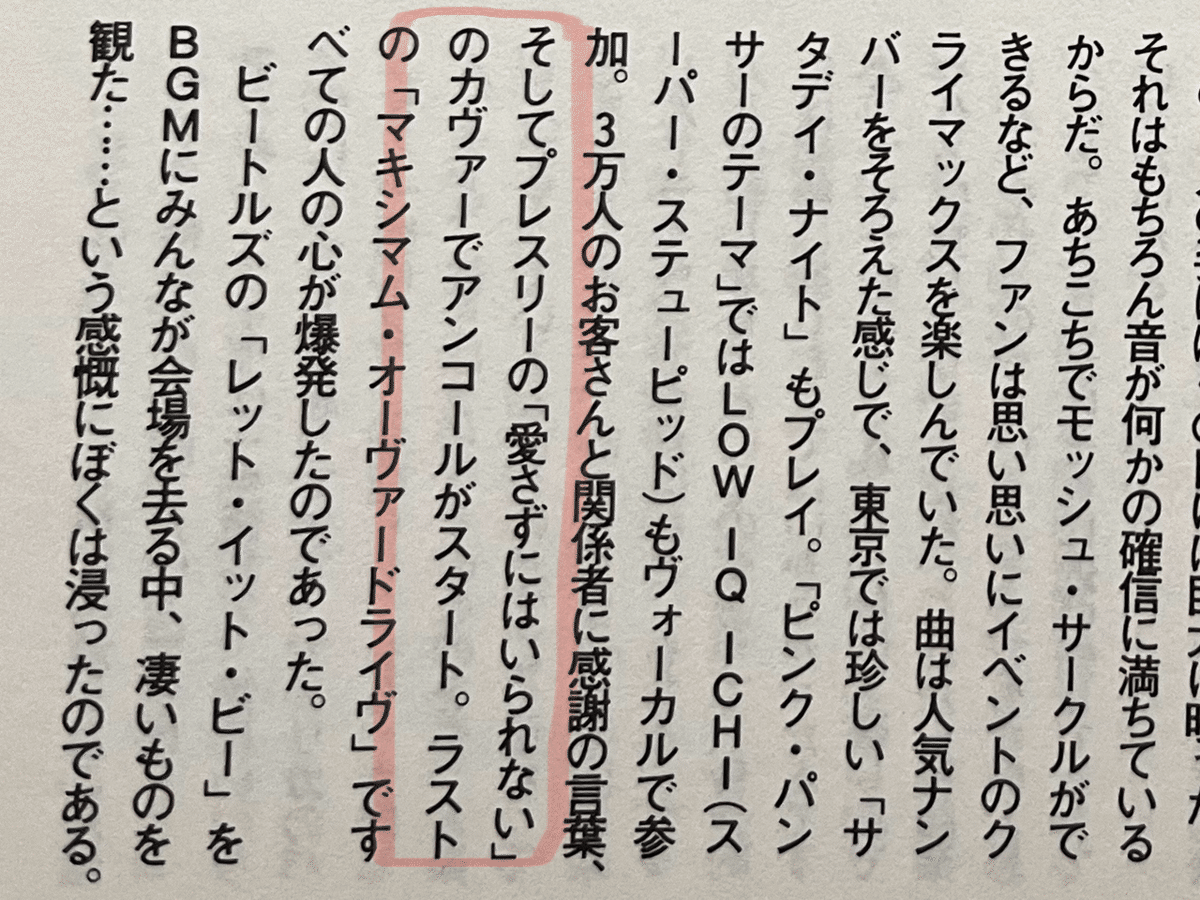 それはもちろん音が何かの確信に満ちている
からだ。あちこちでモッシュ・サークルがで
きるなど、ファンは思い思いにイベントのク
ライマックスを楽しんでいた。曲は人気ナン
バーをそろえた感じで、東京では珍しい「サ
タデイ・ナイト」もプレイ。「ピンク・パン
サーのテーマ」ではLOW IQ ICHI（ス
ーパー・ステューピッド）もヴォーカルで参
加。3万人のお客さんと関係者に感謝の言葉、
そしてプレスリーの「愛さずにはいられない」
のカヴァーでアンコールがスタート。ラスト
の「マキシマム・オーヴァードライヴ」です
べての人の心が爆発したのであった。
ビートルズの「レット・イット・ビー」を
BGMにみんなが会場を去る中、凄いものを
観た………という感慨にぼくは浸ったのである。